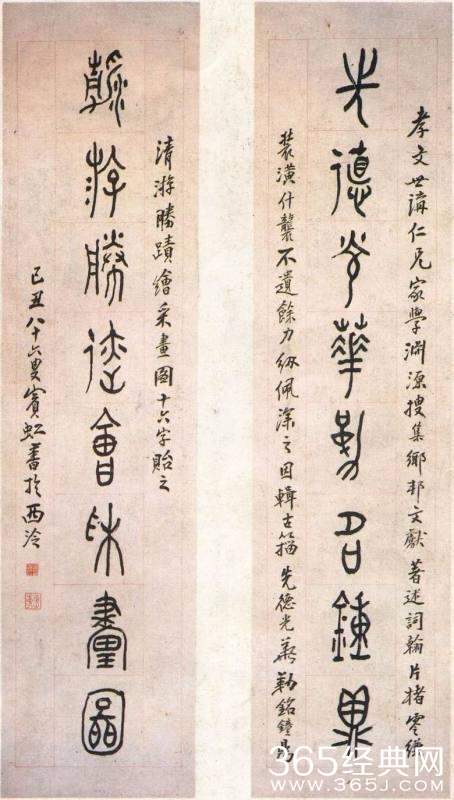 孝文世講仁兄家學淵源搜集鄉邦文獻著述詞翰片楮零縑
先德光華勒名鍾鼎
裝潢什襲不遺餘力紉佩深之因輯古籀先德光華勒銘鐘鼎
清游勝蹟繪采畫圖十六字貽之
游勝迹會采畫圖
己丑八十六叟賓虹書於西泠
365经典网
WWW.365J.COM